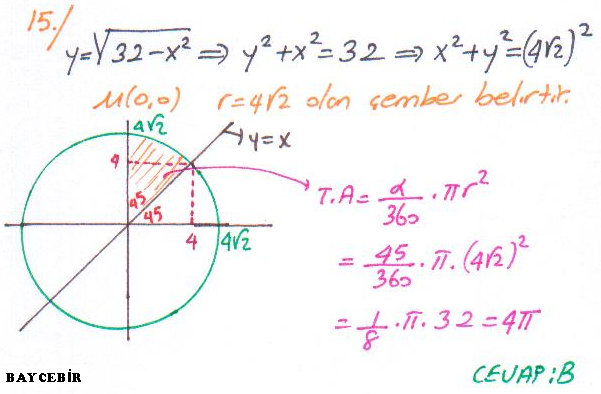 15./
y=√32-x² ⇒ y²+x²=32 ⇒ x²+y²=(4√2)²
M(0,0) r=4√2 olan çember belirtir.
4√2
y=x
4
45
45
4
4√2
T.A=α/360 · πr²
=45/360 · π · (4√2)²
=1/8 · π · 32=4π
CEVAP:B
BAYCEBİR